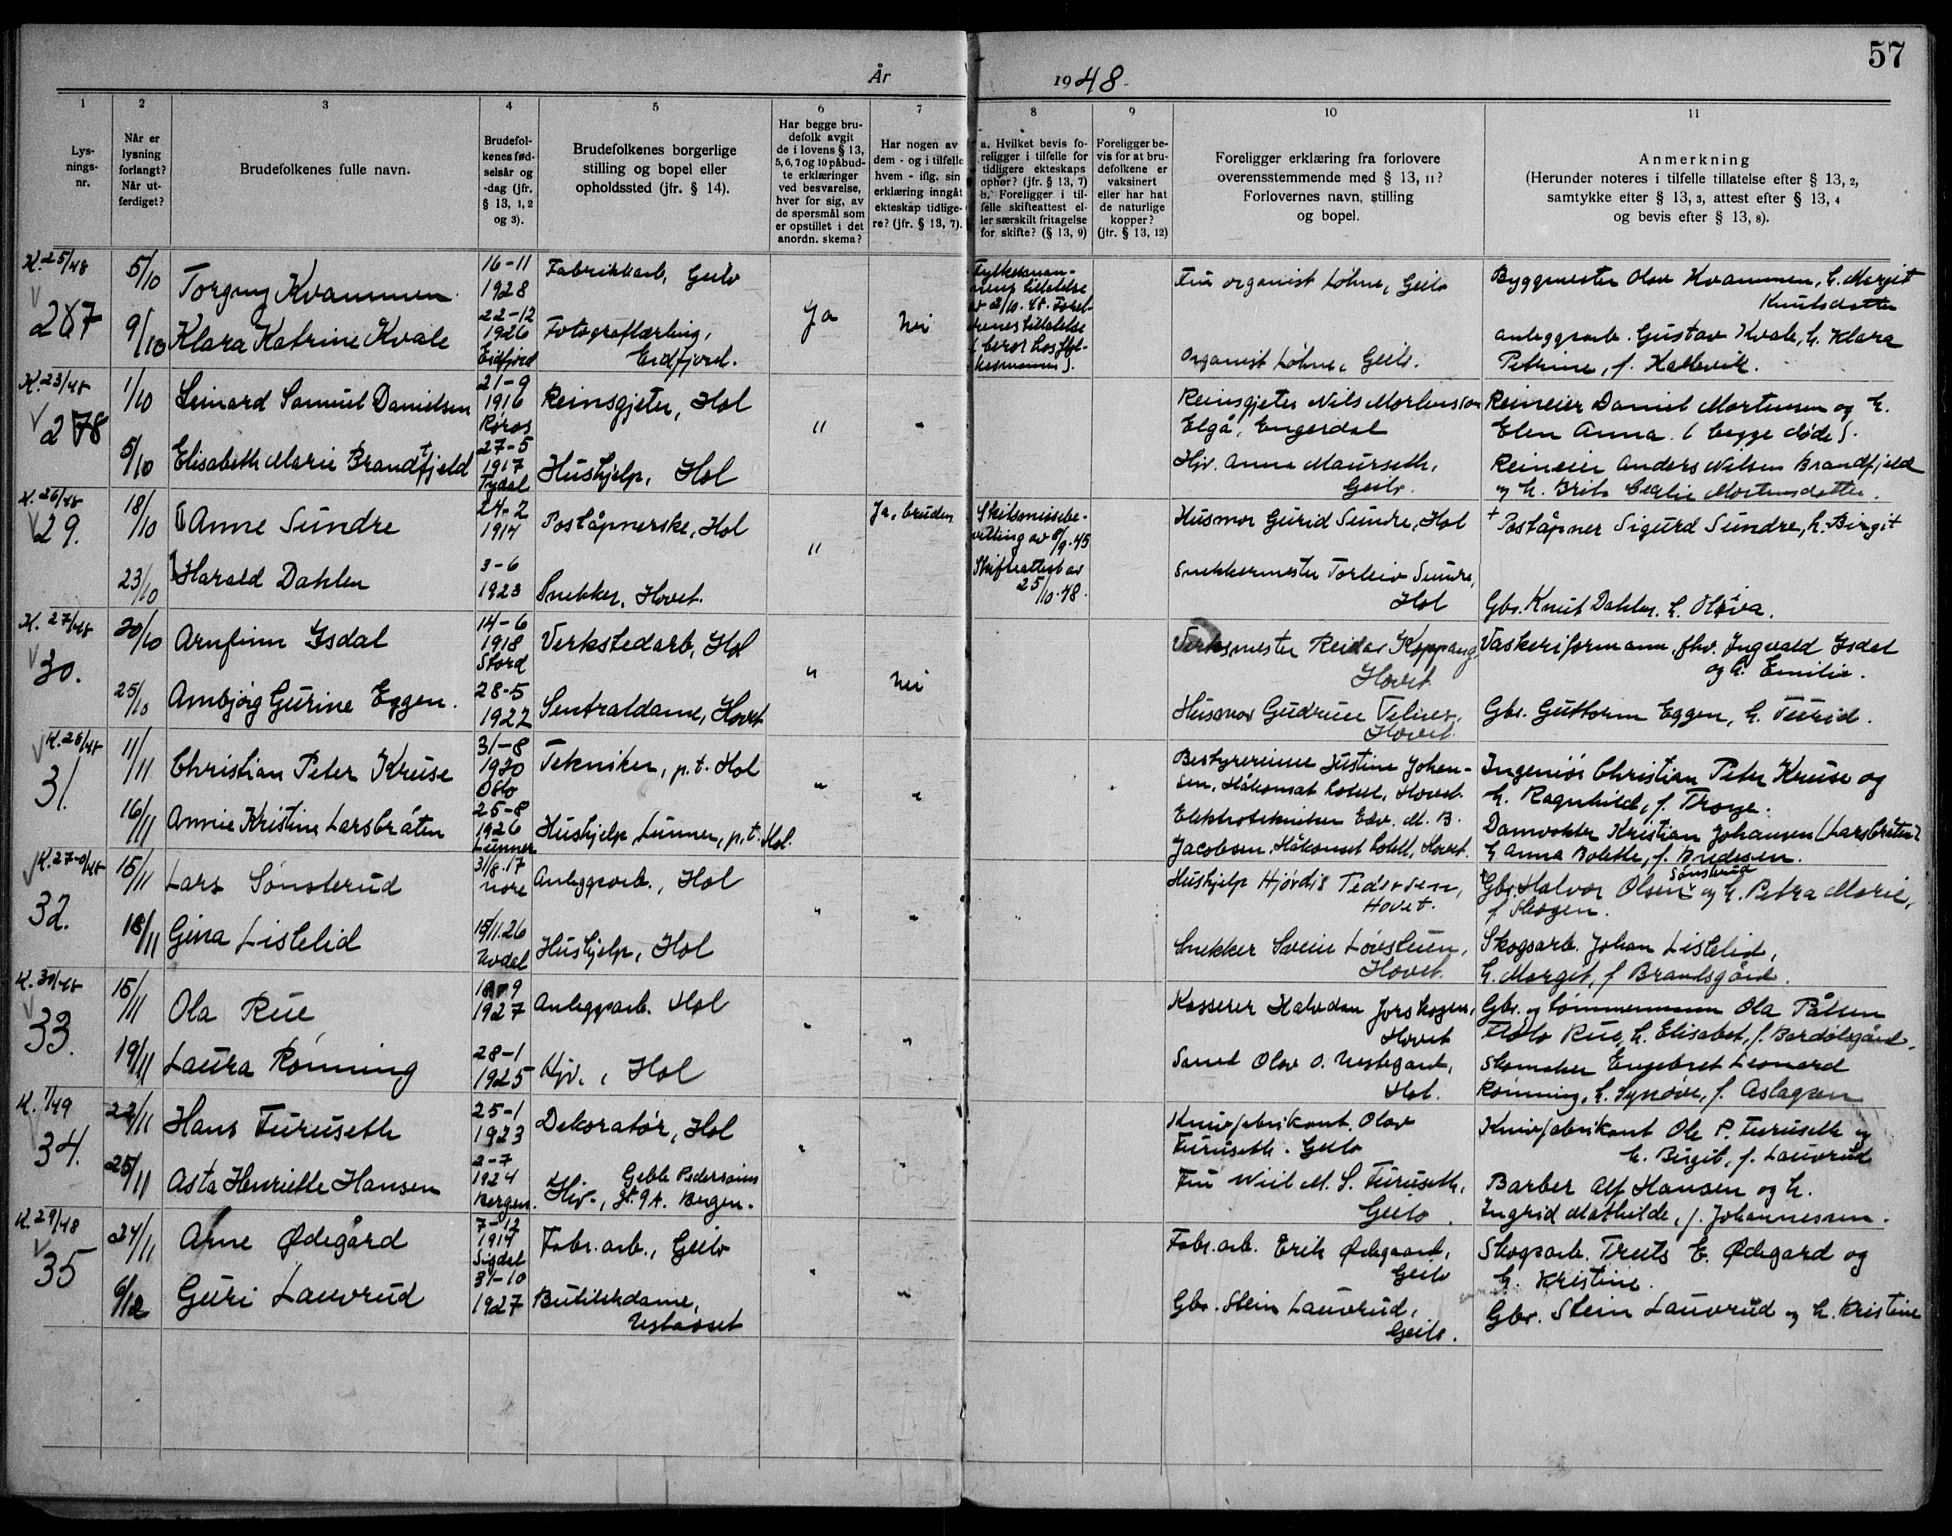 57
År 1948.
1 2 3 4 5 6 7 8 9 10 11
Lys-
nings-
nr.
Når er
lysning
forlangt?
Når ut-
ferdiget?
Brudefolkenes fulle navn.
Brudefol-
kenes fød-
selsår og
-dag (jfr.
§ 13, 1, 2
og 3).
Brudefolkenes borgerlige
stilling og bopel eller
opholdssted (jfr. § 14).
Har begge bru-
defolk avgit
de i lovens § 13,
5, 6, 7 og 10 påbud-
te erklæringer
ved besvarelse,
hver for sig, av
de spørsmål som
er opstillet i det
anordn. skema?
Har nogen av
dem - og i tilfelle
hvem - iflg. sin
erklæring inngått
ekteskap tidlige-
re? (jfr. § 13, 7).
a. Hvilket bevis fo-
religger i tilfelle for
tidligere ekteskaps
ophør? (jfr. § 13, 7)
b. Foreligger i til-
felle skifteattest el-
ler særskilt fritagelse
for skifte? (§ 13, 9)
Foreligger be-
vis for at bru-
defolkene er
vaksinert
eller har hat
de naturlige
kopper?
(jfr. § 13, 12)
Foreligger erklæring fra forlovere
overensstemmende med § 13, 11?
Forlovernes navn, stilling
og bopel.
Anmerkning
(Herunder noteres i tilfelle tillatelse efter § 13, 2,
samtykke efter § 13, 3, attest efter § 13, 4
og bevis efter § 13, 8).
K. 25/48
267
5/10
Torgny Kvammen
16-11
1928
Fabrikkarb, Geilo
Ja
Nei
tillatelse
av 2/10.48.
tillatelse
Fru organist Løhne, Geilo
Byggmester Olav Kvammen, h. Margit
Knutsdatter
9/10
Klara Katrine Kvale
22-12
1926
Eidfjord
Fotograflærling,
Eidfjord.
Organist Løhne, Geilo.
anleggsarb. Gustav Kvale, h. Klara
Petrine, f. Hallevik.
K. 23/48
278
1/10
Leinard Samuel Danielsen
21-9
1916
Røros
Reinsgjeter, Hol
"
"
Reinsgjeter Nils Mortensson
Elgå, Engerdal
Reineier Daniel Mortensen og h.
Elen Anna. (begge døde).
5/10
Elisabeth Marie Brandtfjeld
27-5
1917
Tydal
Hushjelp, Hol
Hjv. Anna Maurseth,
Geilo.
Reineier Anders Nilsen Brandfjeld
og h. Brita Cecilie Mortensdatter.
K. 26/48
29.
18/10
Anne Sundre
24-2
1914
Poståpnerske, Hol
"
Ja, bruden
Skilsmissebe-
villing av 8/9.45
Skifteattest av
25/10.48.
Husmor Gurid Sundre, Hol
+ Poståpner Sigurd Sundre, h. Birgit
23/10
Harald Dahlen
3-6
1923
Snekker, Hovet.
Snekkermester Torleiv Sundre,
Hol
Gbr. Knut Dahlen. h. Oliva.
K. 27/48
30.
20/10
Arnfinn Isdal
14-6
1918
Stord
Verkstedarb, Hol
"
Nei
Verksmester Reidar Koppang,
Hovet
Vaskeriformann, fhv. Ingvald Isdal
og h. Emilie.
25/10
Arnbjørg Gurine Eggen.
28-5
1922
Sentraldame, Hovet
Husmor Gudrun Telnes,
Hovet
Gbr. Guttorm Eggen, h. Turid.
K. 28/48
31.
11/11
Christian Peter Kruse
31-8
1920
Oslo
Tekniker, p.t. Hol
"
"
Bestyrerinne Justine Johan-
sen, Håkonset hotell, Hovet.
Ingeniør Christian Peter Kruse og
h. Ragnhild, f. Troye.
16/11
Annie Kristine Larsbråten
25-8
1926
Lunner
Hushjelp Lunner, p.t. Hol.
Elektrotekniker Edv. M. B.
Jacobsen. Håkonset hotell, Hovet.
Damvokter Kristian Johansen (Larsbråten)
h. Anna Bolette, f. Bredesen.
32.
15/11
Lars Sønsterud
31/8.17
Nore
Anleggsarb., Hol
"
"
Hushjelp Hjørdis Pedersen,
Hovet.
Gbr. Halvor Olsen Sønsterud og h. Petra Marie,
f. Skogen.
18/11
Gina Listelid
15/11.26
Uvdal
Hushjelp, Hol
Snekker Svein Løvstuen,
Hovet.
Skogsarb. Johan Listelid,
h. Margit, f. Brandsgård.
K. 30/48
33.
15/11
Ola Rue
1927
Anleggsarb. Hol
"
"
Kasserer Halvdan Jorskogen,
Hovet
Gbr. og tømmermann Ola Pålsen
Rue, h. Elisabet, f. Bardølsgård.
19/11
Laura Rønning
28-1
1925
Hjv., Hol
Olav O. Nestegard,
Hol.
Skomaker Engebret Leonard
Rønning, h. Synøve, f. Aslagsen
K. 1/49
34.
22/11
Hans Furuseth
25-1
1923
Dekoratør, Hol
"
"
Knivfabrikant Olav
Furuseth. Geilo
Knivfabrikant Ole P. Furuseth og
h. Birgit, f. Lauvrud
25/11
Asta Henriette Hansen
2-7
1924
Bergen.
Hjv., Geble Pedersøns
gt. 9A. Bergen.
Fru M. S. Furuseth,
Geilo.
Barber Alf Hansen og h.
Ingrid Mathilde, f. Johannessen.
K. 29/48
35
24/11
Arne Ødegård
7-12
1914
Sigdal
Fabr.arb., Geilo
"
"
Fabr.arb. Erik Ødegaard,
Geilo
Skogsarb. Truls E. Ødegård og
h. Kristine.
6/12
Guri Lauvrud
31-10
1927
Butikkdame,
Ustaoset
Gbr. Stein Lauvrud,
Geilo.
Gbr. Stein Lauvrud og h. Kristine